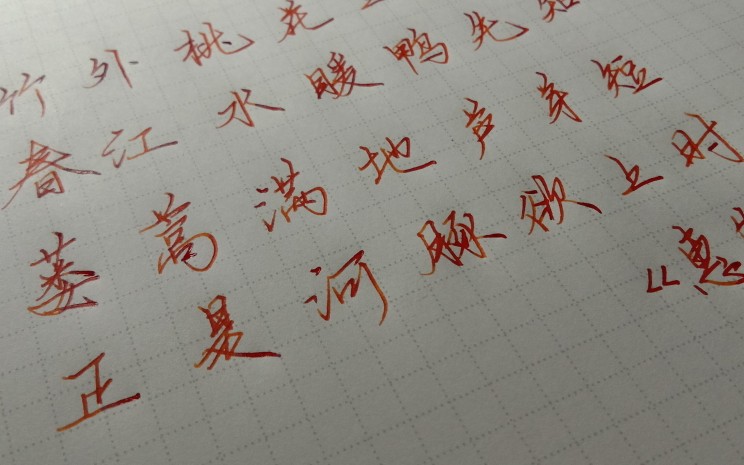 竹外桃花三
春江水暖鸭先知
蒌蒿满地芦芽短
正是河豚欲上时
“惠